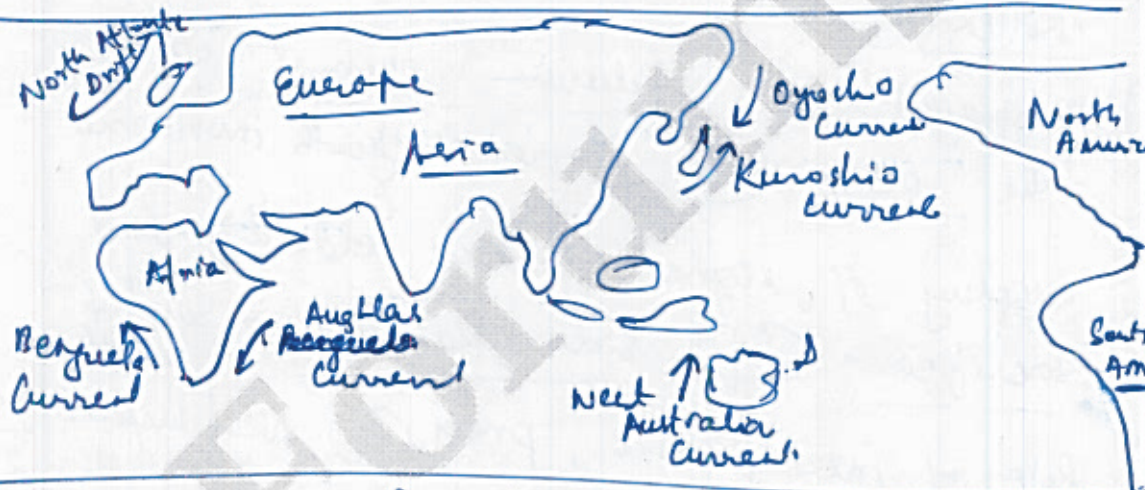 North Atlantic
Drift
Europe
Asia
Oyosho
Current
Kuroshio
Current
North
Africa
Benguela
Current
Aughlas
Current
West
Australia
Current